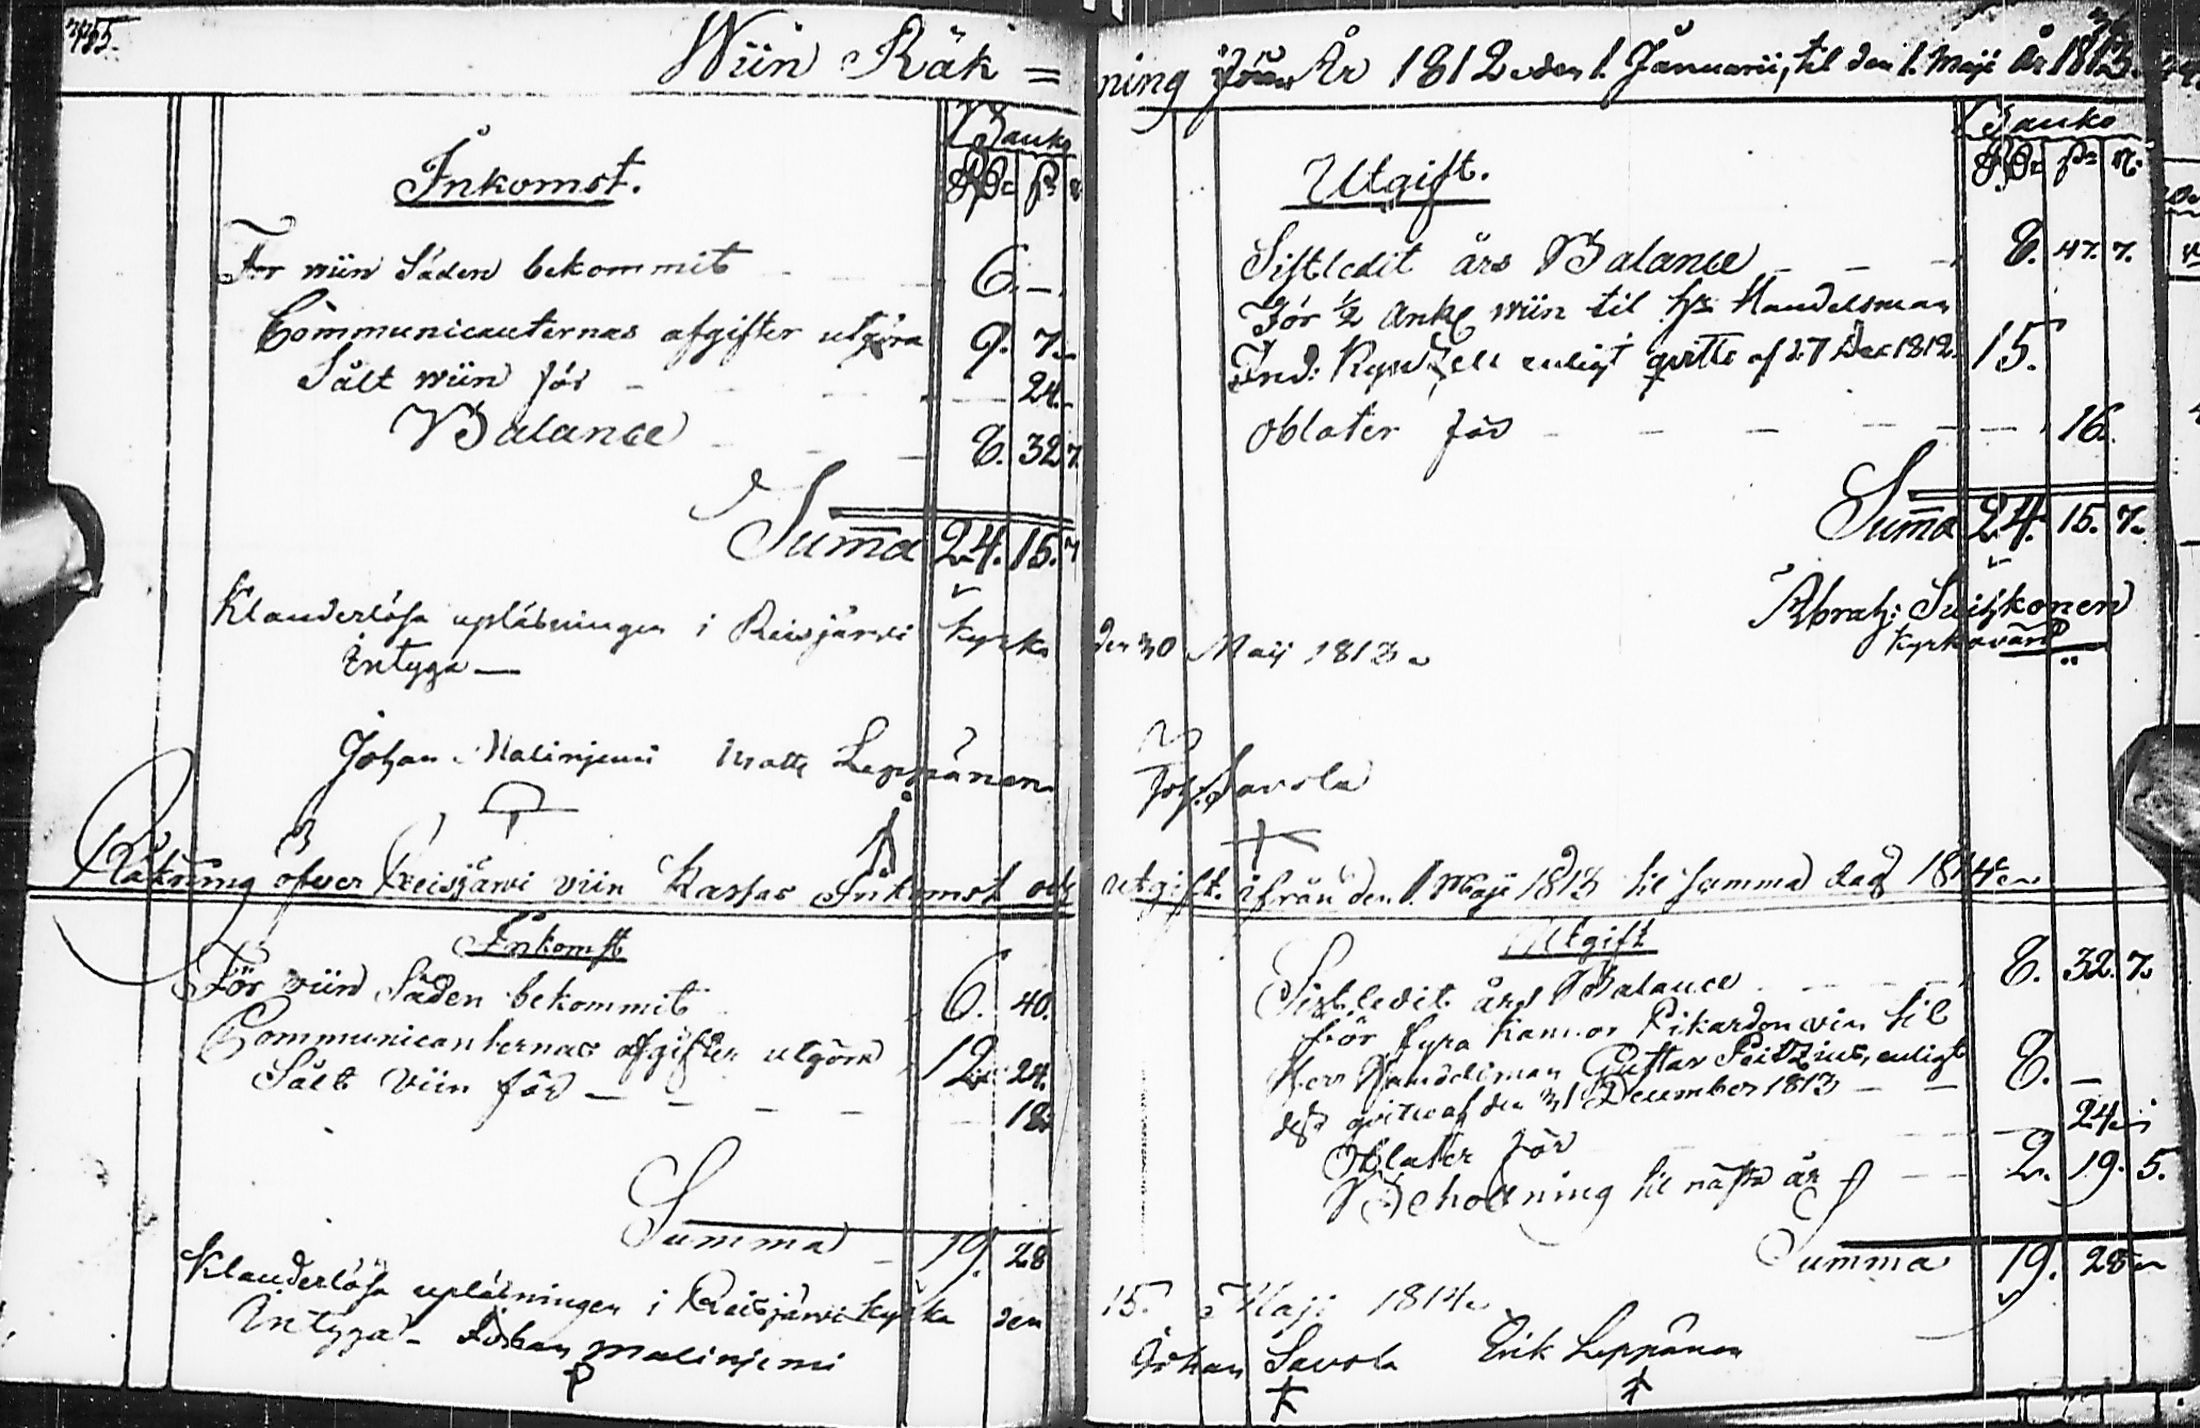 Wiin Räk=
Banko
Inkomst.
För wiin Säden bekommit 6. —
Communicanternas afgifter utgöra 9. 7.
Sålt wiin för — 24. —
Balance 8. 32. 7.
Summa 24. 15. 7
Klanderlösa upläsningen i Reisjärvi Kyrka
intyga —
Johan Malinjemi Matts Leppänen
Räkning öfver Reisjärvi viin Kassas Inkomst och
Inkomst
För viin Säden bekommit 6. 40.
Communicanternas afgifter utgöra 12. 24.
Sålt viin för — — — — 12.
Summa 19. 28
Klanderlösa upläsningen i Reisjärvi Kyrka den
intyga — Johan Malinjemi
ning för År 1812 den 1. Januarii, til den 1. Maji År 1813.
Banko
Utgift.
Sistledit års Balance — — 8. 47. 7.
För 1/2 Ank. wiin til Hr Handelsman
enligt qvitto af 27 Dec 1812. 15.
Oblater för — — — — — 16.
Summa 24. 15. 7.
Abrah: Suikkonen
Kyrkovärd
den 30 Maij 1813.
Joh. Savola
utgift. ifrån den 1. Maji 1813 til samma dag 1814.
Utgift
Sistledit års Balance — — — 8. 32. 7.
för fyra kannor Pikardon vin til
Herr Handelsman Gustav enligt
dess qvitto af den 31 December 1813 — — 8. —
Oblater för — — 24.
Behollning til nästa år — — 2. 19. 5.
Summa 19. 28
15. Maji 1814.
Johan Savola Erik Leppänen